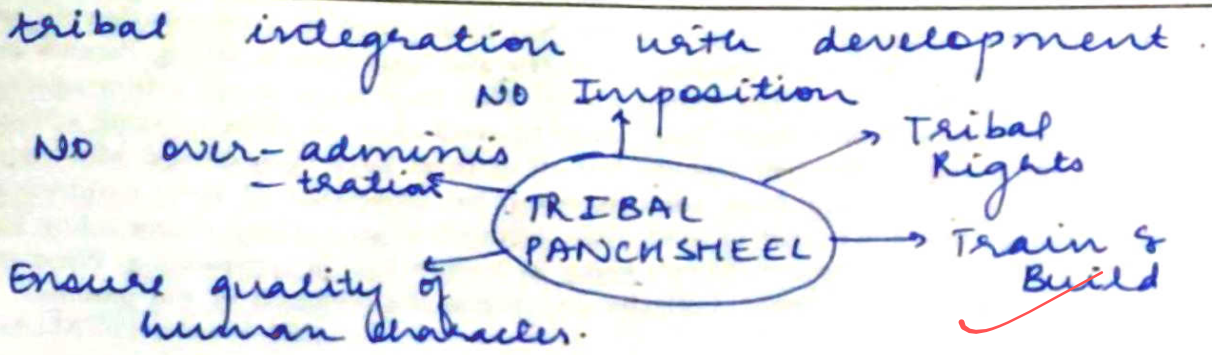 tribal integration with development.
No Imposition
Tribal
Rights
No over-adminis
-tration
TRIBAL
PANCHSHEEL
Train &
Build
Ensure quality of
human character.